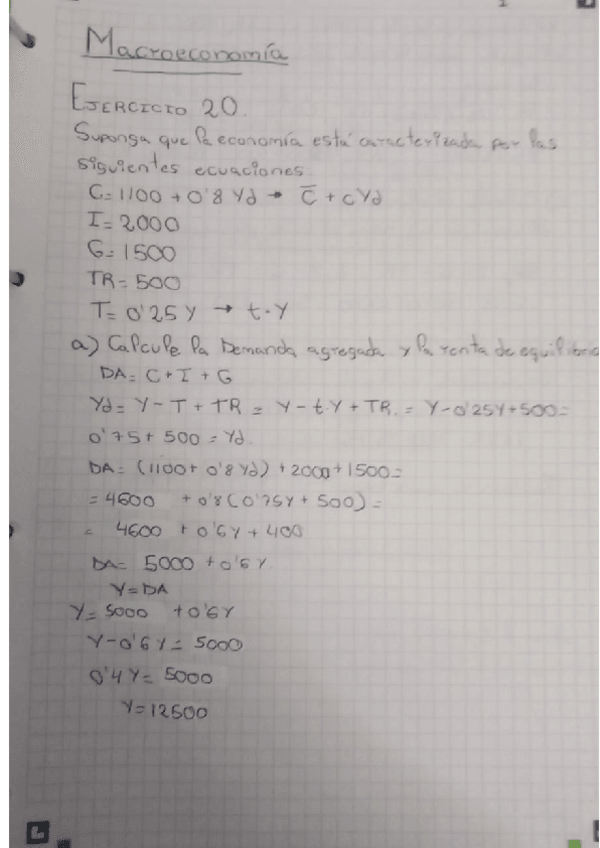 Macroeconomía
EJERCICIO 20.
Suponga que la economía está caracterizada por las
siguientes ecuaciones
C=1100 + 0'8 Yd → C̅ + cYd
I= 2000
G= 1500
TR= 500
T= 0'25 Y → t·Y
a) Calcule la Demanda agregada y la renta de equilibrio
DA= C+I+G
Yd= Y-T+TR = Y-t·Y+TR. = Y-0'25Y+500=
0'75+500=Yd.
DA= (1100+0'8 Yd) +2000+1500=
= 4600 +0'8(0'75Y+500)=
= 4600 +0'6Y+400
DA= 5000 +0'6Y
Y=DA
Y= 5000 +0'6Y
Y-0'6Y= 5000
0'4Y= 5000
Y=12500